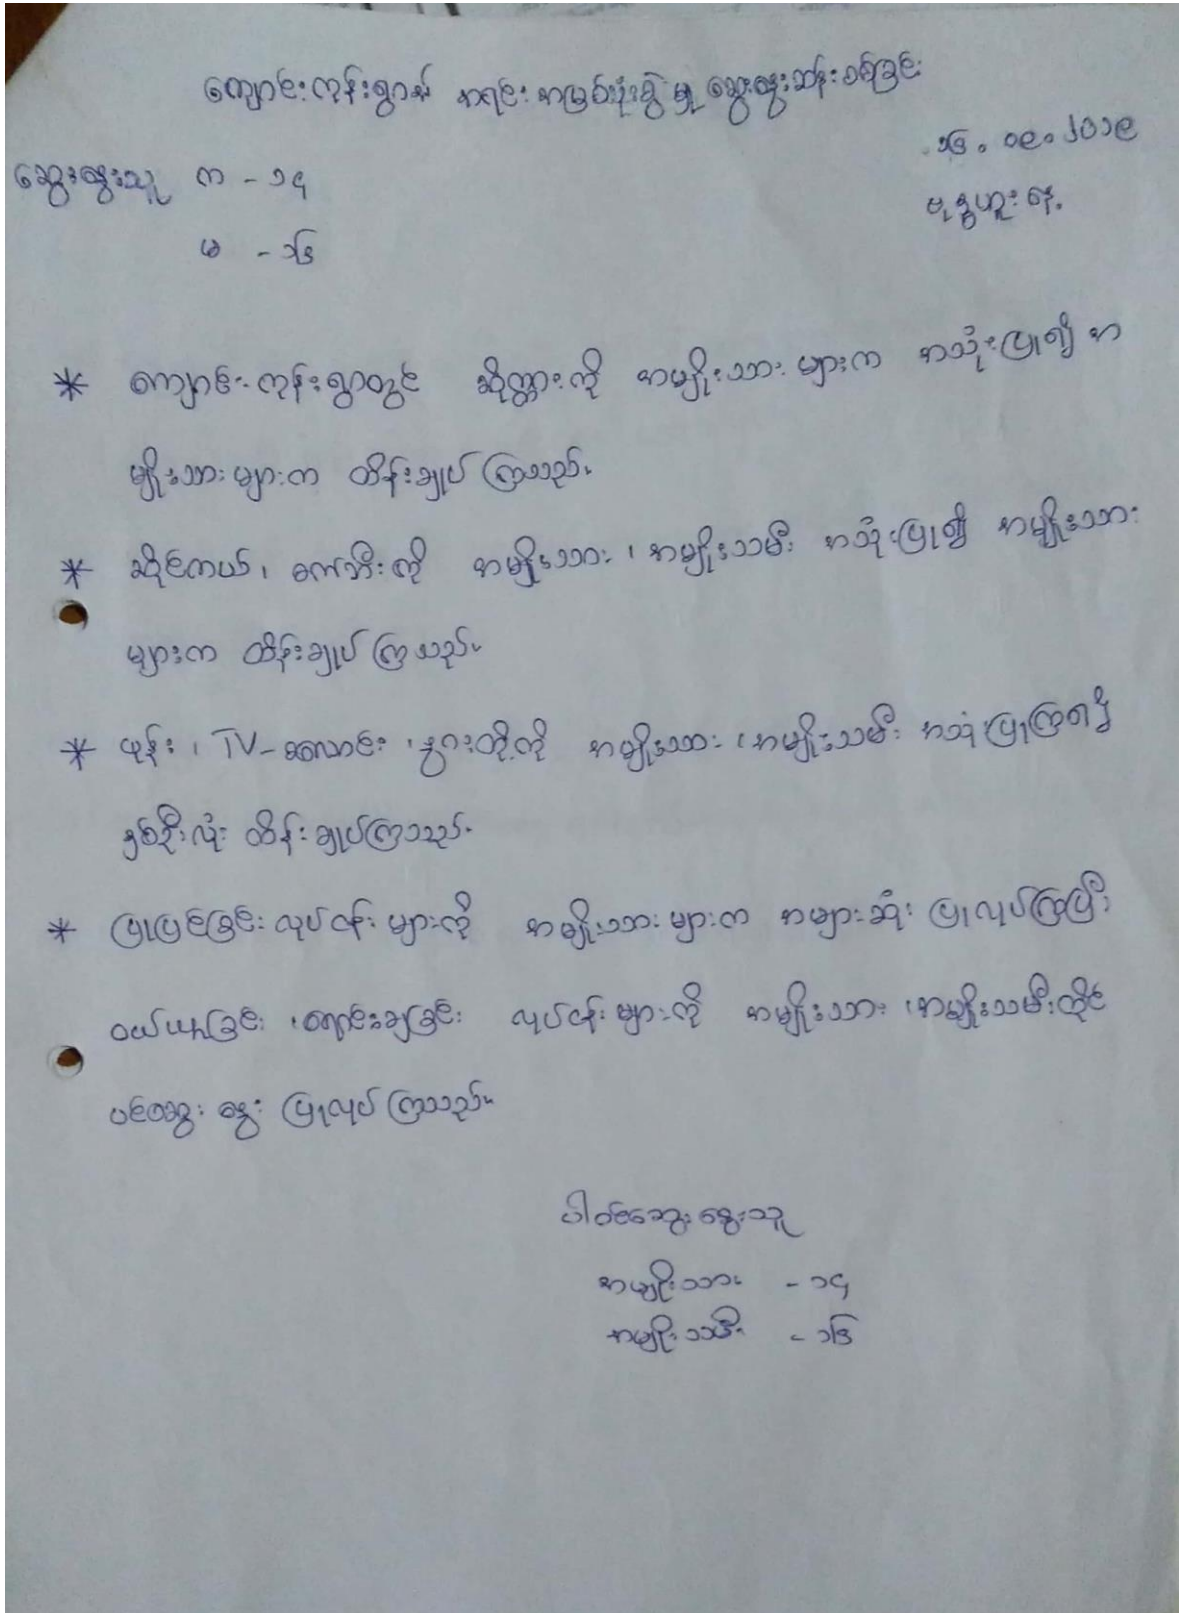 ကျောင်းကုန်းရွာ၏ အရင်းအမြစ်သုံးစွဲမှု ဆွေးနွေးဆန်းစစ်ခြင်း
၁၆.၀၉.၂၀၁၉
ဆွေးနွေးသူ က - ၁၄
ဗုဒ္ဓဟူးနေ့
မ - ၁၆
* ကျောင်းကုန်းရွာတွင် ဆိုက္ကားကို အမျိုးသားများက အသုံးပြု၍ အ
မျိုးသားများက ထိန်းချုပ်ကြသည်။
* ဆိုင်ကယ်၊ စက်ဘီးကို အမျိုးသား၊ အမျိုးသမီး အသုံးပြု၍ အမျိုးသား
များက ထိန်းချုပ်ကြသည်။
* ဖုန်း၊ TV-စလောင်း၊ နွားတို့ကို အမျိုးသား၊ အမျိုးသမီး အသုံးပြုကြ၍
နှစ်ဦးလုံး ထိန်းချုပ်ကြသည်။
* ပြုပြင်ခြင်းလုပ်ငန်းများကို အမျိုးသားများက အများဆုံး ပြုလုပ်ကြပြီး
ဝယ်ယူခြင်း၊ ရောင်းချခြင်း လုပ်ငန်းများကို အမျိုးသား၊ အမျိုးသမီးတိုင်
ပင်ဆွေးနွေး ပြုလုပ်ကြသည်။
ပါဝင်ဆွေးနွေးသူ
အမျိုးသား - ၁၄
အမျိုးသမီး - ၁၆